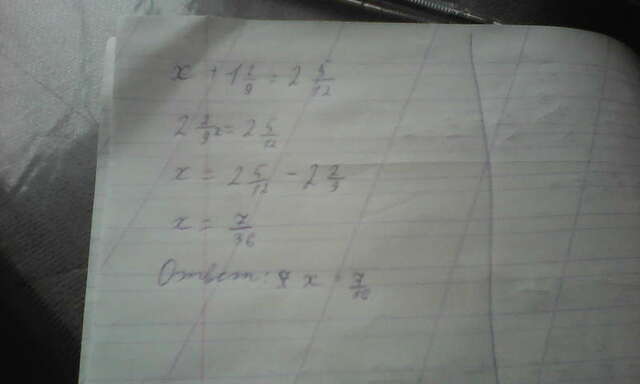 x + 1 2/9 = 2 5/12
2 2/9x = 2 5/12
x = 2 5/12 - 2 2/9
x = 7/36
Ответ: x = 7/36